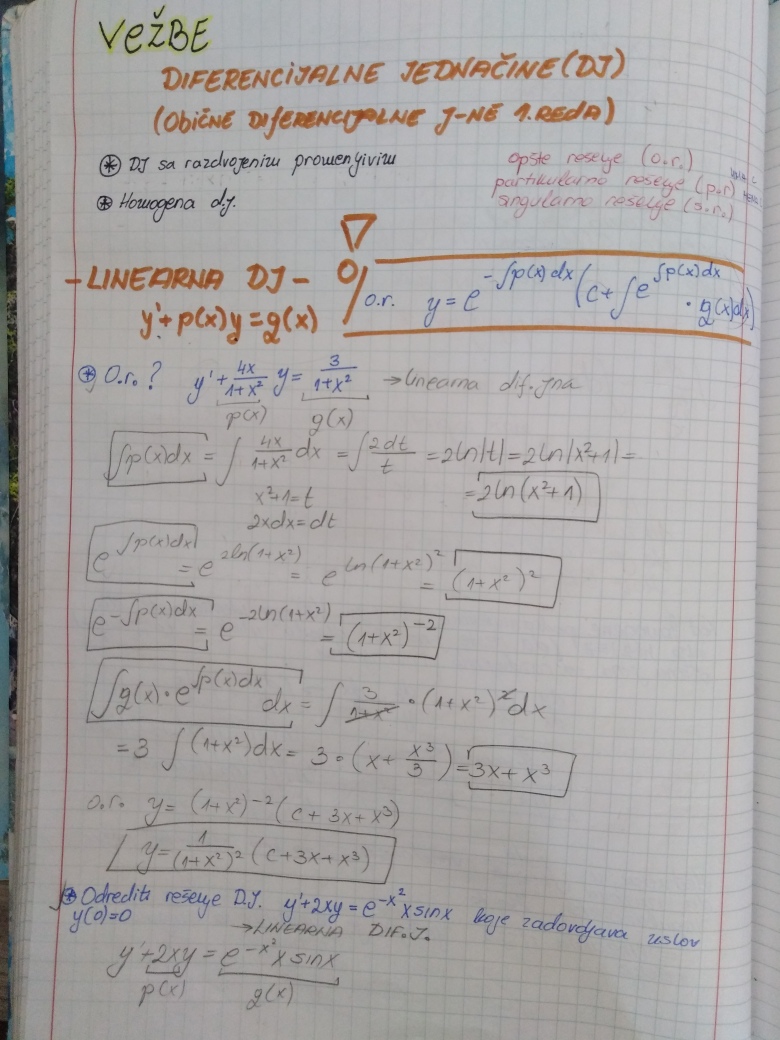 VEŽBE
DIFERENCIJALNE JEDNAČINE (DJ)
(Obične diferencijalne j-ne 1. reda)
⊛ DJ sa razdvojenim promenjivim
opšte rešenje (o.r.)
partikularno rešenje (p.r)
⊛ Homogena d.j.
singularno rešenje (s.r.)
- LINEARNA DJ -
y' + p(x)y = g(x)
o.r. y = e^{-∫p(x)dx} (c + ∫e^{∫p(x)dx} · g(x)dx)
⊛ O.r. ? y' + 4x/(1+x²) y = 3/(1+x²) → linearna dif. jna
p(x) g(x)
∫p(x)dx = ∫ 4x/(1+x²) dx = ∫ 2dt/t = 2ln|t| = 2ln|x²+1| =
x²+1=t = 2ln(x²+1)
2xdx=dt
e^{∫p(x)dx} = e^{2ln(1+x²)} = e^{ln(1+x²)²} = (1+x²)²
e^{-∫p(x)dx} = e^{-2ln(1+x²)} = (1+x²)^{-2}
∫g(x)·e^{∫p(x)dx} dx = ∫ 3/(1+x²) · (1+x²)² dx
= 3 ∫(1+x²)dx = 3·(x + x³/3) = 3x+x³
o.r. y = (1+x²)^{-2} (c+3x+x³)
y = 1/(1+x²)² (c+3x+x³)
⊛ Odrediti rešenje D.J. y'+2xy = e^{-x²} x sinx koje zadovoljava uslov
y(0)=0
→ LINEARNA DIF. J.
y'+2xy = e^{-x²} x sinx
p(x) g(x)